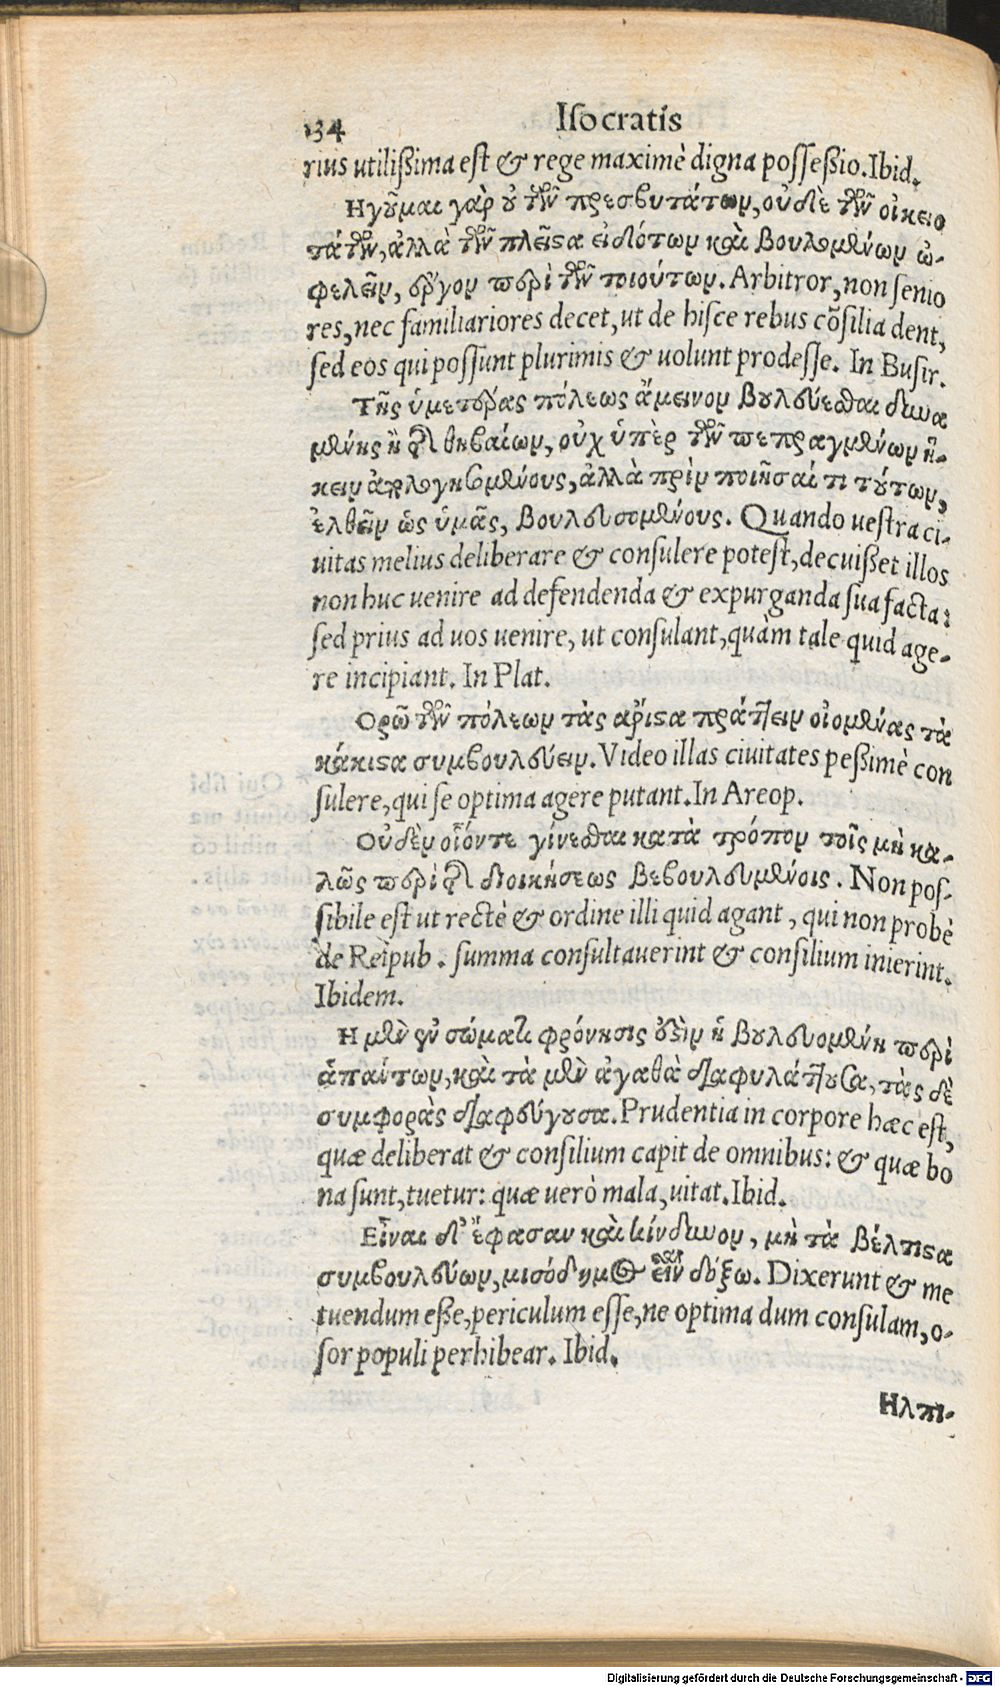 134 Isocratis
rius utilißima est & rege maximè digna possessio. Ibid.
Ηγοῦμαι γὰρ οὐ τῶν πρεσβυτάτων, οὐδὲ τῶν οἰκειο
τάτων, ἀλλὰ τῶν πλεῖστα εἰδότων καὶ βουλομένων ὠ-
φελεῖν, ἔργον περὶ τῶν τοιούτων. Arbitror, non senio
res, nec familiariores decet, ut de hisce rebus cõsilia dent,
sed eos qui possunt plurimis & uolunt prodesse. In Busir.
Τῆς ὑμετέρας πόλεως ἄμεινον βουλεύεσθαι δυνα
μένης ἢ τῆς θηβαίων, οὐχ ὑπὲρ τῶν πεπραγμένων ἥ-
κειν ἀπολογησομένους, ἀλλὰ πρὶν ποιῆσαί τι τούτων,
ἐλθεῖν ὡς ὑμᾶς, βουλευσομένους. Quando uestra ci-
uitas melius deliberare & consulere potest, decuißet illos
non huc uenire ad defendenda & expurganda sua facta:
sed prius ad uos uenire, ut consulant, quàm tale quid age-
re incipiant. In Plat.
Ορῶ τῶν πόλεων τὰς ἄριστα πράττειν οἰομένας τὰ
κάκιστα συμβουλεύειν. Video illas ciuitates peßimè con
sulere, qui se optima agere putant. In Areop.
Οὐδὲν οἷόντε γίνεσθαι κατὰ τρόπον τοῖς μὴ κα-
λῶς περὶ τῆς διοικήσεως βεβουλευμένοις. Non pos-
sibile est ut rectè & ordine illi quid agant, qui non probè
de Reipub. summa consultauerint & consilium inierint.
Ibidem.
Η μὲν ἐν σώματι φρόνησις οὐσὶν ἡ βουλευομένη περὶ
ἁπάντων, καὶ τὰ μὲν ἀγαθὰ διαφυλάττουσα, τὰς δὲ
συμφορὰς διαφεύγουσα. Prudentia in corpore hæc est,
quæ deliberat & consilium capit de omnibus: & quæ bo
na sunt, tuetur: quæ uerò mala, uitat. Ibid.
Εἶναι δ' ἔφασαν καὶ κίνδυνον, μὴ τὰ βέλτιστα
συμβουλεύων, μισόδημος εἶναι δόξω. Dixerunt & me
tuendum eße, periculum esse, ne optima dum consulam, o-
sor populi perhibear. Ibid.
Ηλπι-
Digitalisierung gefördert durch die Deutsche Forschungsgemeinschaft - DFG